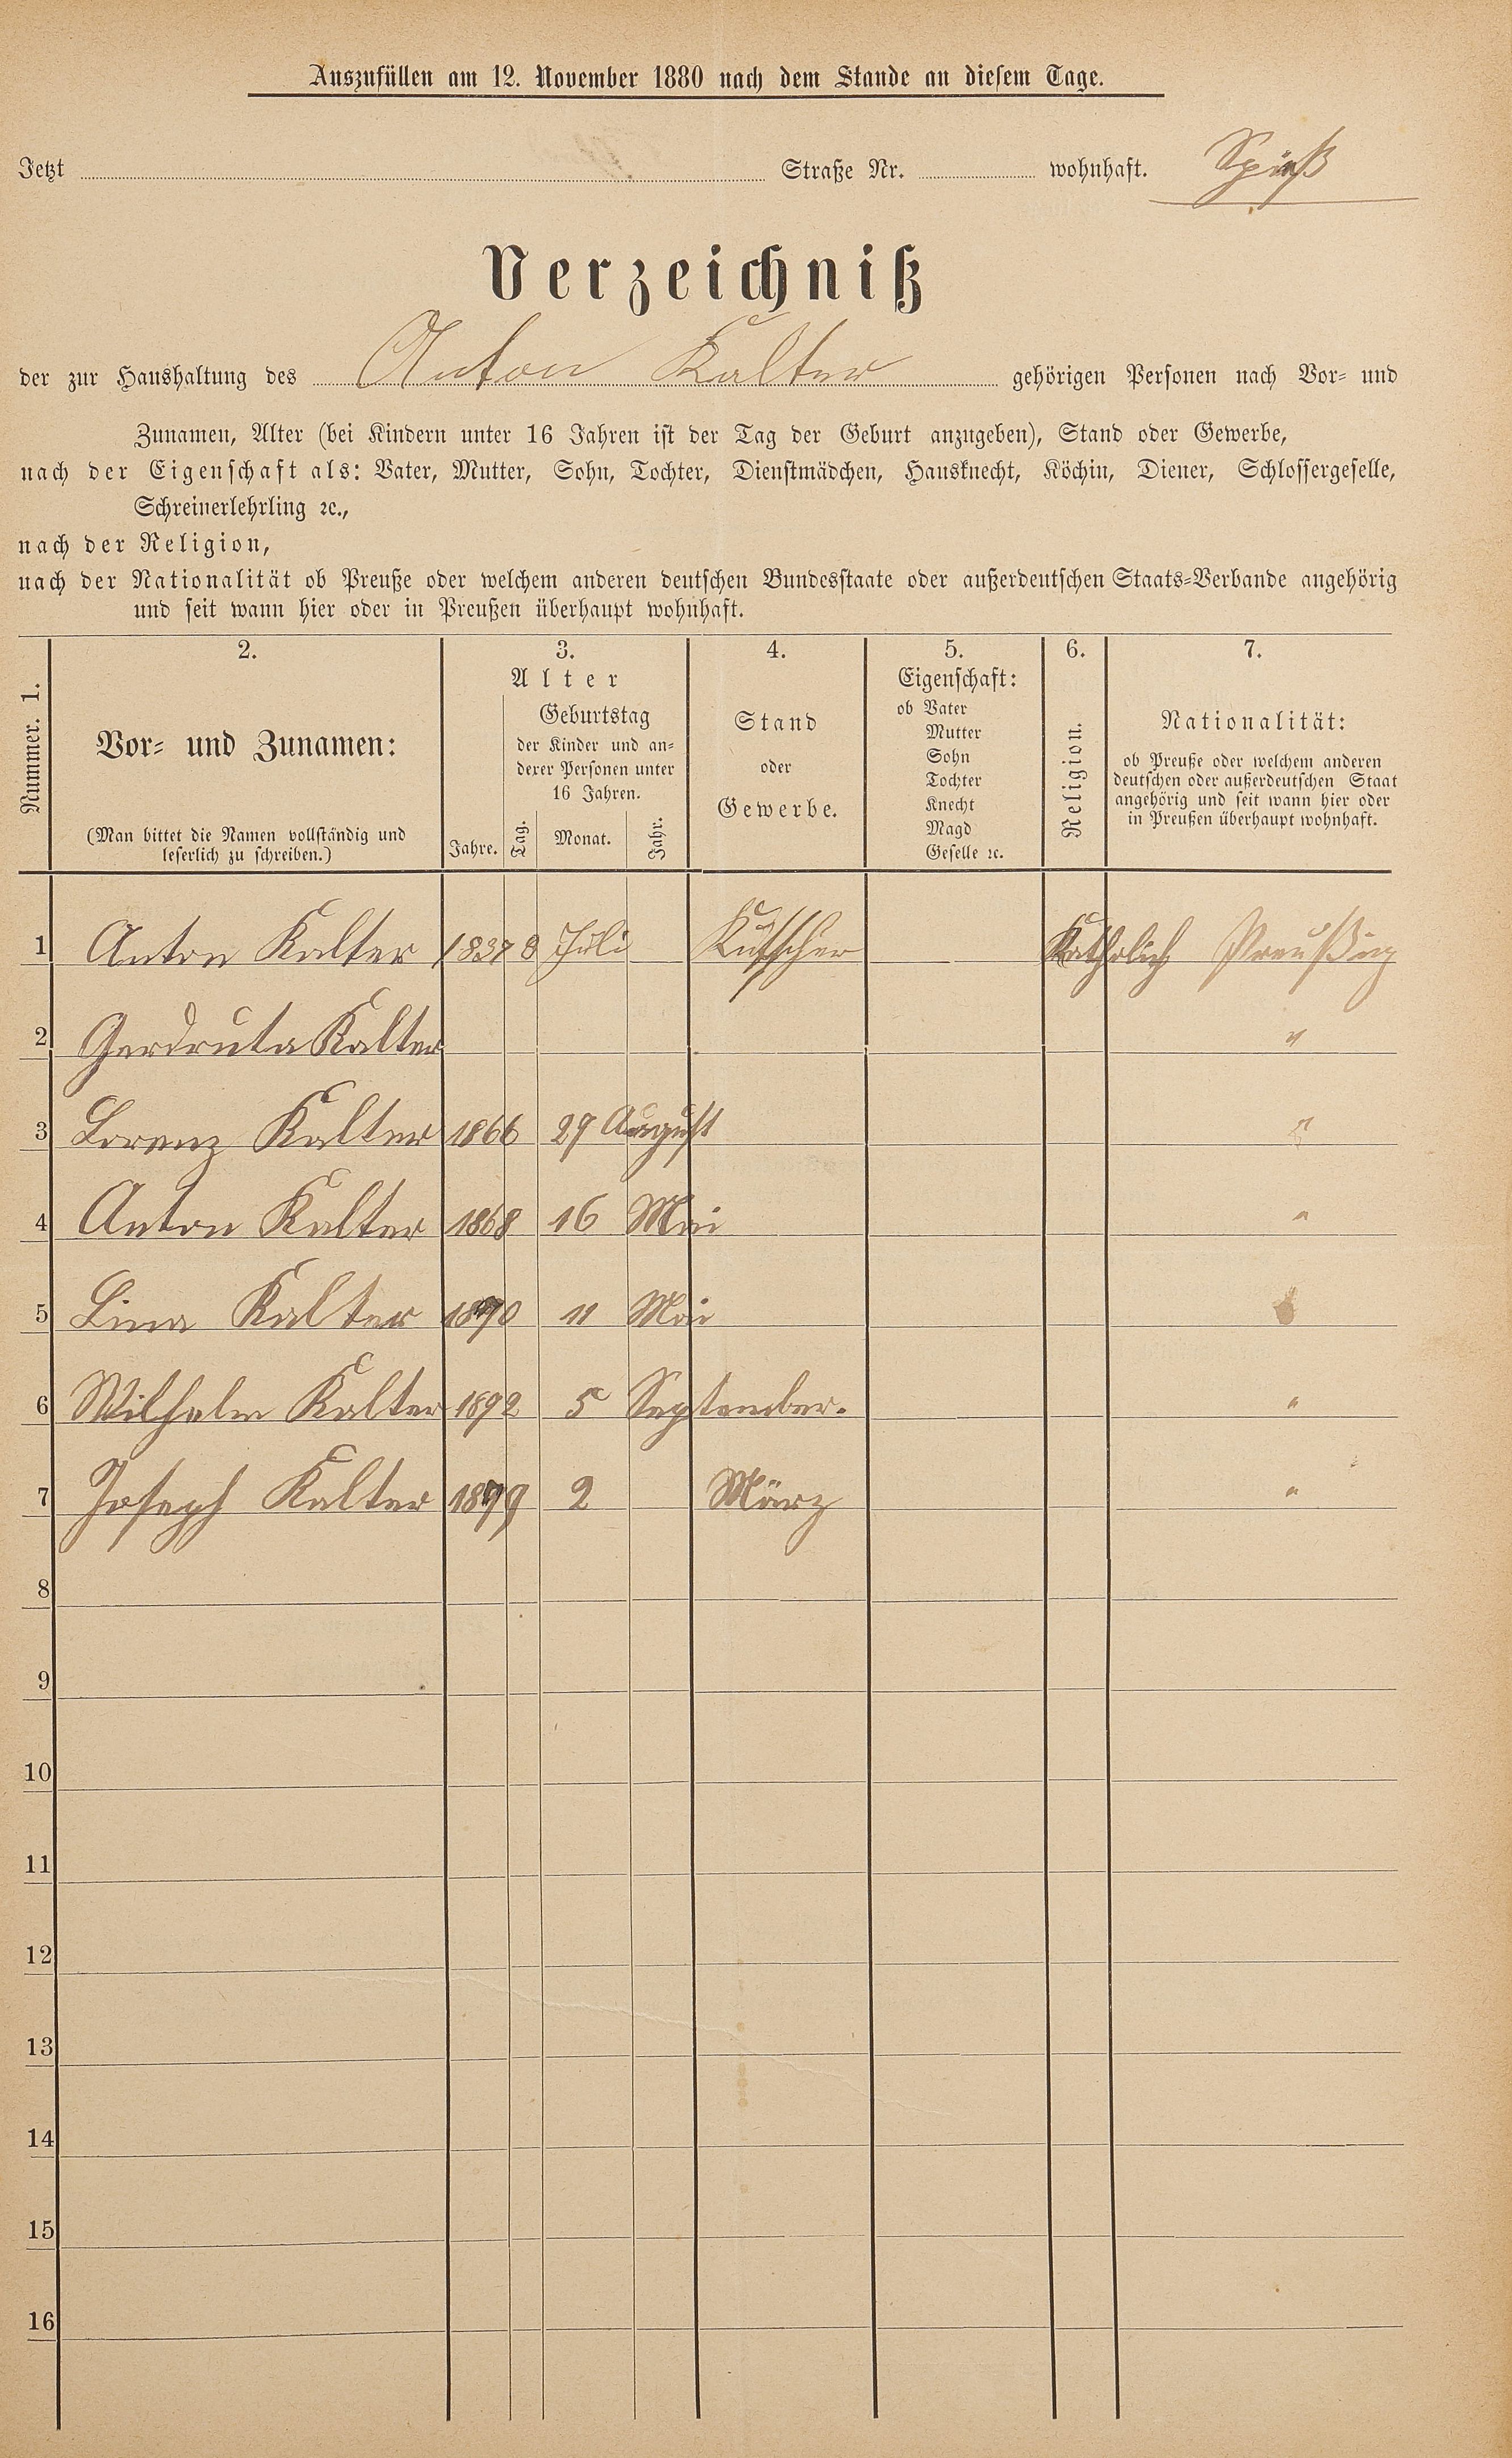 Auszufüllen am 12. November 1880 nach dem Stande an diesem Tage.
Jetzt Straße Nr. wohnhaft. Spieß
Verzeichniß
der zur Haushaltung des Anton Kalter gehörigen Personen nach Vor- und
Zunamen, Alter (bei Kindern unter 16 Jahren ist der Tag der Geburt anzugeben), Stand oder Gewerbe,
nach der Eigenschaft als: Vater, Mutter, Sohn, Tochter, Dienstmädchen, Hausknecht, Köchin, Diener, Schlossergeselle,
Schreinerlehrling ꝛc.,
nach der Religion,
nach der Nationalität ob Preuße oder welchem anderen deutschen Bundesstaate oder außerdeutschen Staats-Verbande angehörig
und seit wann hier oder in Preußen überhaupt wohnhaft.
Nummer. 1.
2.
Vor- und Zunamen:
(Man bittet die Namen vollständig und
leserlich zu schreiben.)
3.
Alter
Geburtstag
der Kinder und an-
derer Personen unter
16 Jahren.
Jahre. Tag. Monat. Jahr.
4.
Stand
oder
Gewerbe.
5.
Eigenschaft:
ob Vater
Mutter
Sohn
Tochter
Knecht
Magd
Geselle ꝛc.
6.
Religion.
7.
Nationalität:
ob Preuße oder welchem anderen
deutschen oder außerdeutschen Staat
angehörig und seit wann hier oder
in Preußen überhaupt wohnhaft.
1 Anton Kalter 1837 8 Juli Kutscher Katholich
2 Gerdruta Kalter "
3 Lorenz Kalter 1866 29 August "
4 Anton Kalter 1868 16 Mai "
5 Lina Kalter 1870 11 Mai
6 Wilhelm Kalter 1872 5 September. "
7 Joseph Kalter 1879 2 März "
8
9
10
11
12
13
14
15
16